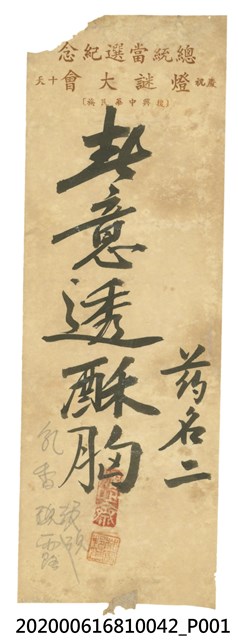 總統當選紀念
慶祝燈謎大會十天
春意透酥胸
药名二
乳香
202000616810042_P001